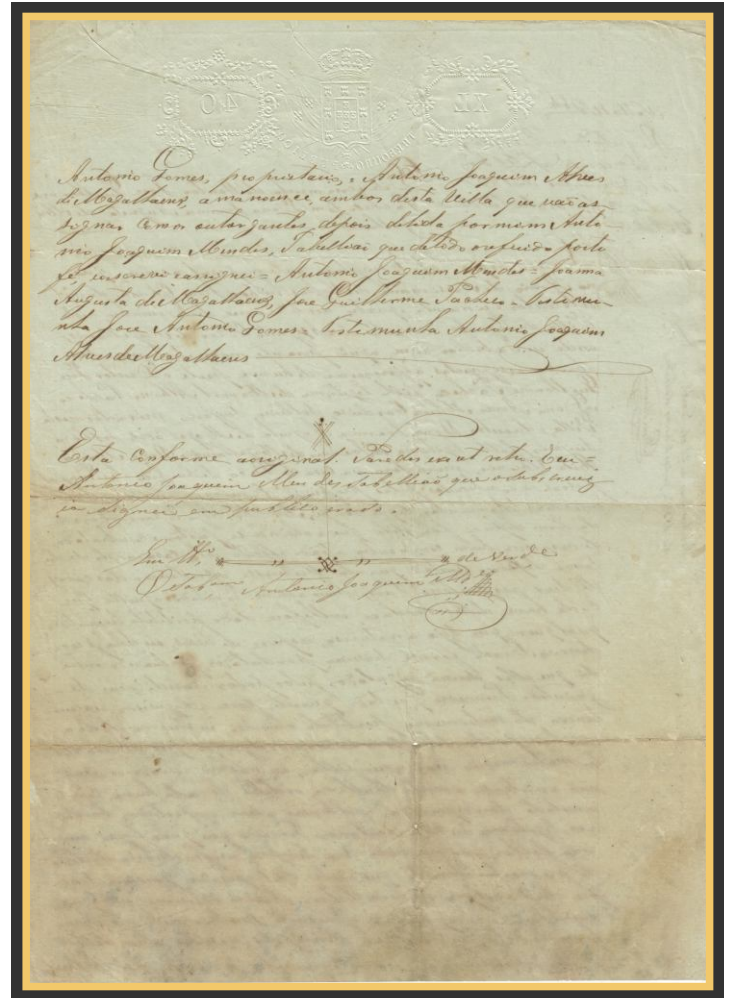 40 XL
Antonio Gomes, proprietario, e Antonio Joaquim Alves
de Magalhaens, amanuence, ambos desta Villa que vaõ as-
signar com os outorgantes depois de lido por mim Anto-
nio Joaquim Mendes, Tabelliaõ que de todo o referido porto
fé escrevi e assignei = Antonio Joaquim Mendes = Joanna
Augusta de Magalhaens, Jose Guilherme Pacheco = Testemu-
nha Jose Antonio Gomes = Testimunha Antonio Joaquim
Alves de Magalhaens
Está conforme ao original Paredes era ut retro. E eu =
Antonio Joaquim Mendes Tabelliaõ que o subscrevi
e assignei em publico e raso.
Em de Verde
O Tabam Antonio Joaquim